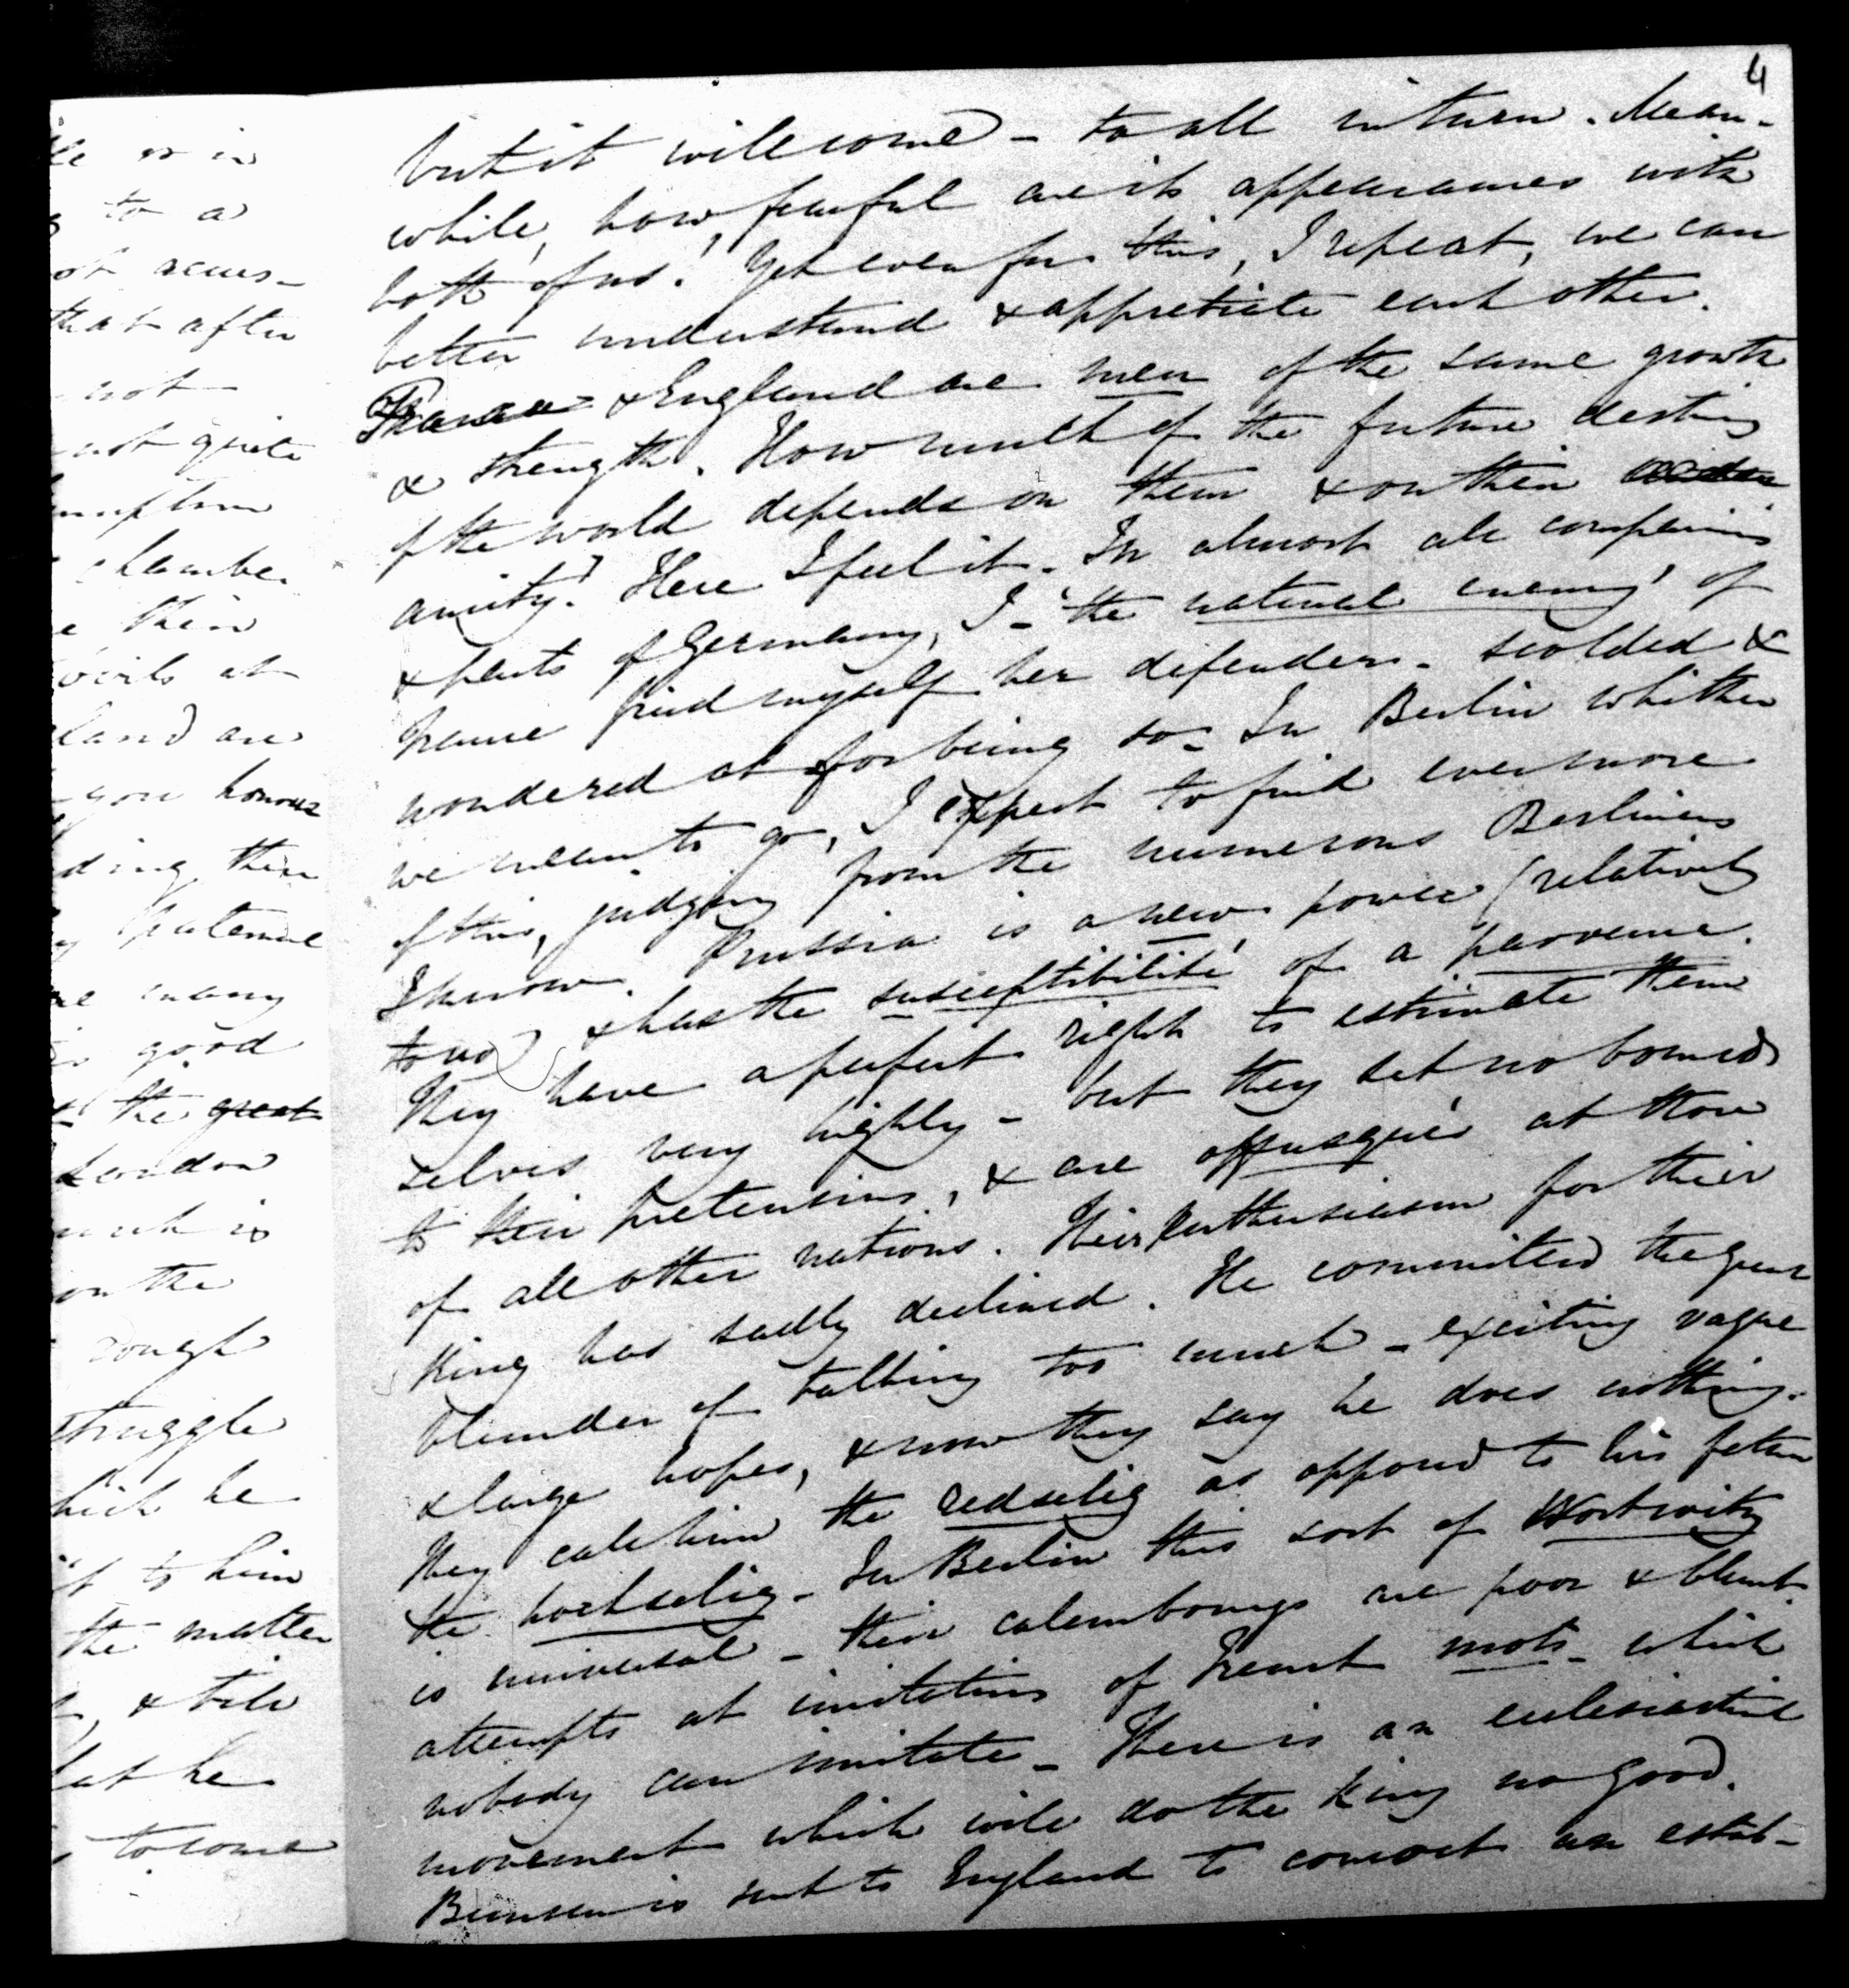 le or in
to a
ot acces-
that after
not
not quite
chamber
their
devils at
land are
you honour
ding their
paternal
many
good
the great
London
is
on the
rough
struggle
which he
it to him
the matter
& tell
that he
to come
4
but it will come - to all in turn. Mean-
while, how fearful are its appearances with
both of us! Yet even for this, I repeat, we can
better understand & appretiate each other.
France & England are men of the same growth
& strength. How much of the future destiny
of the world depends on them & on their
amity! Here I feel it. In almost all companies
& parts of Germany, I - 'the natural enemy' of
France find myself her defender - scolded &
wondered at for being so - In Berlin whither
we mean to go, I expect to find even more
of this, judging from the numerous Berliners
I know. Prussia is a new power (relatively
to us) & has the susceptibilité of a parvenue.
They have a perfect right to estimate them
selves very highly - but they set no bounds
to their pretensions, & are offusqués at those
of all other nations. Their enthusiasm for their
King has sadly declined. He committed the great
blunder of talking too much - exciting vague
& large hopes, & now they say he does nothing.
They call him the redselig as opposed to his father
the hochselig - In Berlin this sort of Wortwitz
is universal - their calembourgs are poor & blunt
attempts at imitations of French mots - which
nobody can imitate - There is an ecclesiastical
movement which will do the King no good.
Bunsen is sent to England to concoct an estab-